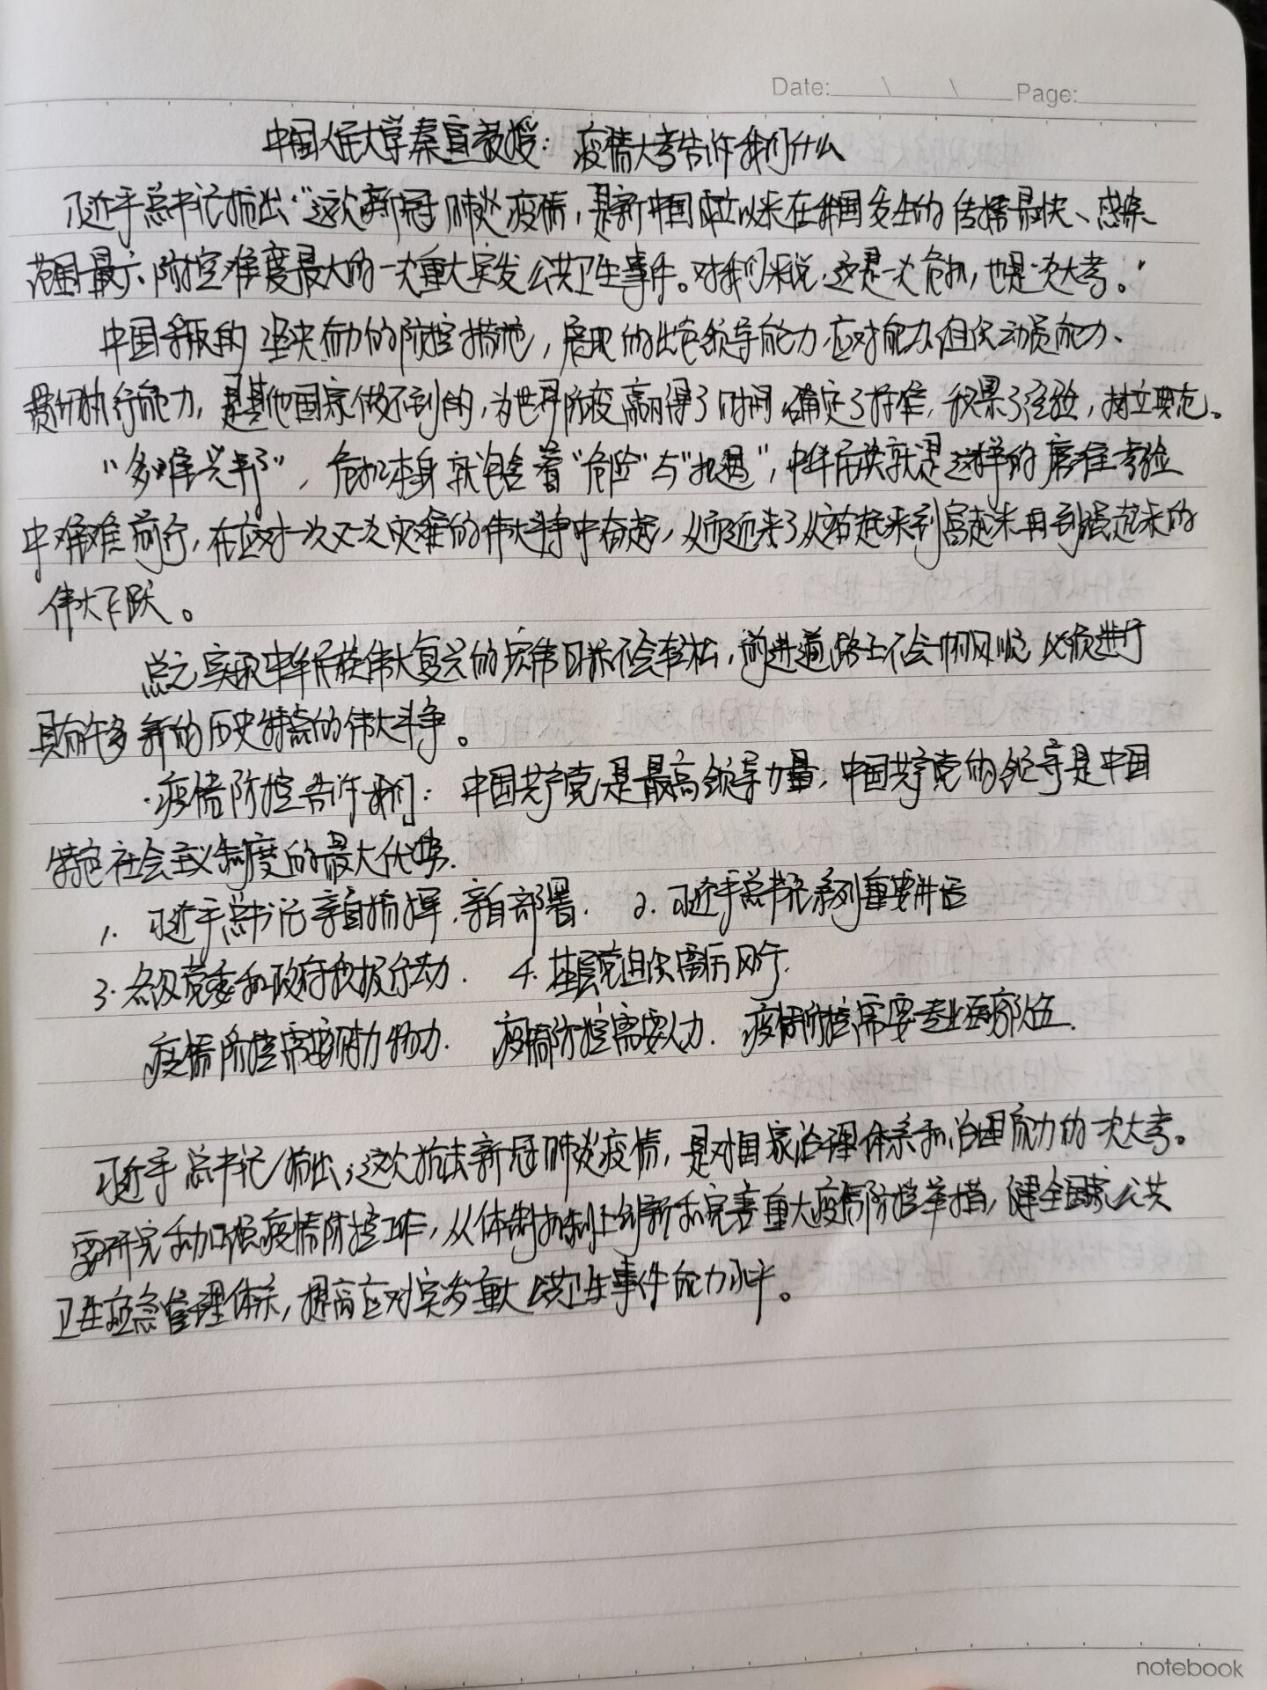 Date: \ \ Page:
中国人民大学秦宣教授：疫情大考告诉我们什么
习近平总书记指出“这次新冠肺炎疫情，是新中国成立以来在我国发生的传播最快、感染
范围最广、防控难度最大的一次重大突发公共卫生事件。对我们来说，这是一次危机，也是一次大考。”
中国采取的坚决有力的防控措施，展现的出色领导能力、应对能力、组织动员能力、
贯彻执行能力，是其他国家做不到的，为世界防疫赢得了时间，确定了标准，积累了经验，树立典范。
“多难兴邦”，危机本身就包含着“危险”与“机遇”，中华民族就是这样的磨难考验
中艰难前行，在应对一次又一次灾难的伟大斗争中奋起，从而迎来了从站起来到富起来再到强起来的
伟大飞跃。
总之，实现中华民族伟大复兴的宏伟目标不会轻松，前进道路上不会一帆风顺，必须进行
具有许多新的历史特点的伟大斗争。
疫情防控告诉我们：中国共产党是最高领导力量，中国共产党的领导是中国
特色社会主义制度的最大优势.
1. 习近平总书记亲自指挥.亲自部署. 2. 习近平总书记系列重要讲话
3. 各级党委和政府积极行动. 4. 基层党组织雷厉风行.
疫情防控需要财力物力. 疫情防控需要人力. 疫情防控需要专业医疗队伍.
习近平总书记指出，这次抗击新冠肺炎疫情，是对国家治理体系和治理能力的一次大考。
要研究和加强疫情防控工作，从体制机制上创新和完善重大疫情防控举措，健全国家公共
卫生应急管理体系，提高应对突发重大公共卫生事件能力水平。
notebook